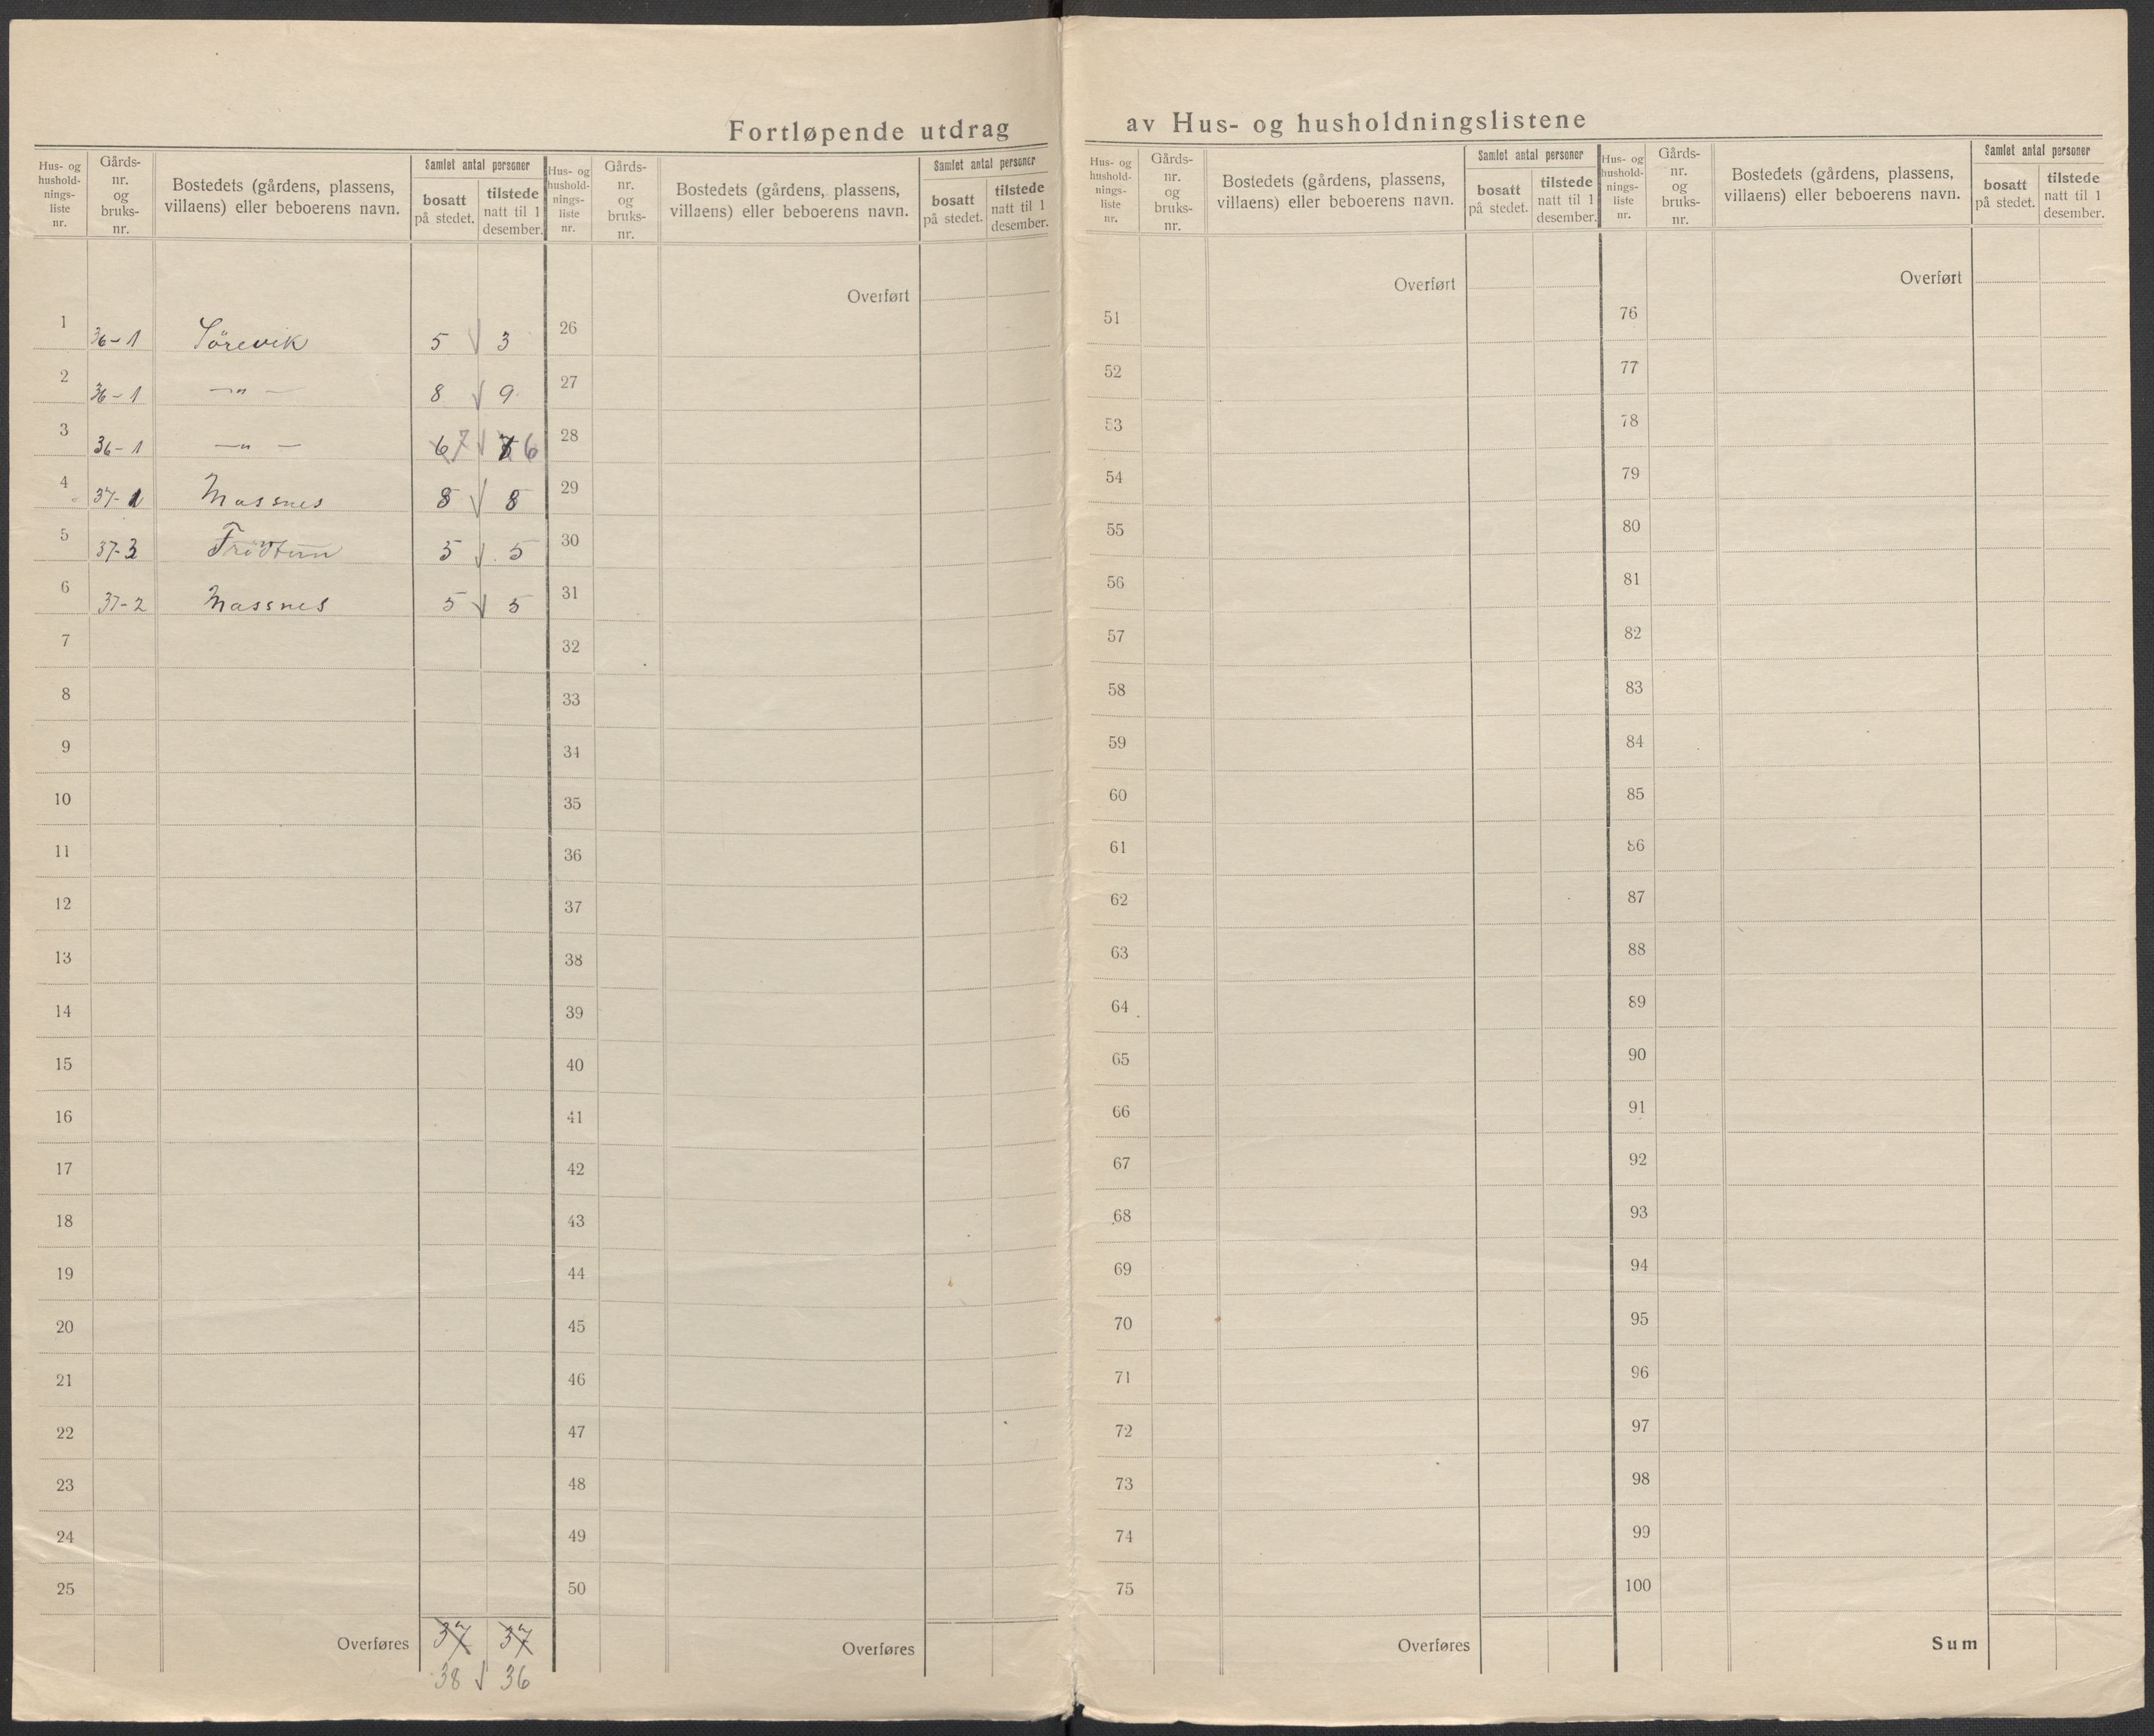 Fortløpende utdrag av Hus- og husholdningslistene
Hus- og hushold-nings-liste nr. | Gårds-nr. og bruks-nr. | Bostedets (gårdens, plassens, villaens) eller beboerens navn. | Samlet antal personer | bosatt på stedet. | tilstede natt til 1 desember.
Hus- og hushold-nings-liste nr. | Gårds-nr. og bruks-nr. | Bostedets (gårdens, plassens, villaens) eller beboerens navn. | Samlet antal personer | bosatt på stedet. | tilstede natt til 1 desember.
Hus- og hushold-nings-liste nr. | Gårds-nr. og bruks-nr. | Bostedets (gårdens, plassens, villaens) eller beboerens navn. | Samlet antal personer | bosatt på stedet. | tilstede natt til 1 desember.
Hus- og hushold-nings-liste nr. | Gårds-nr. og bruks-nr. | Bostedets (gårdens, plassens, villaens) eller beboerens navn. | Samlet antal personer | bosatt på stedet. | tilstede natt til 1 desember.
Overført Overført Overført
1 36-1 Sörevik 5 √ 3 26 51 76
2 36-1 —"— 8 √ 9 27 52 77
3 36-1 —"— 6 7 √ 7 6 28 53 78
4 37-1 Massnes 8 √ 8 29 54 79
5 37-3 5 √ 5 30 55 80
6 37-2 Massnes 5 √ 5 31 56 81
7 32 57 82
8 33 58 83
9 34 59 84
10 35 60 85
11 36 61 86
12 37 62 87
13 38 63 88
14 39 64 89
15 40 65 90
16 41 66 91
17 42 67 92
18 43 68 93
19 44 69 94
20 45 70 95
21 46 71 96
22 47 72 97
23 48 73 98
24 49 74 99
25 50 75 100
Overføres 37 37 Overføres Overføres Sum
38 √ 36